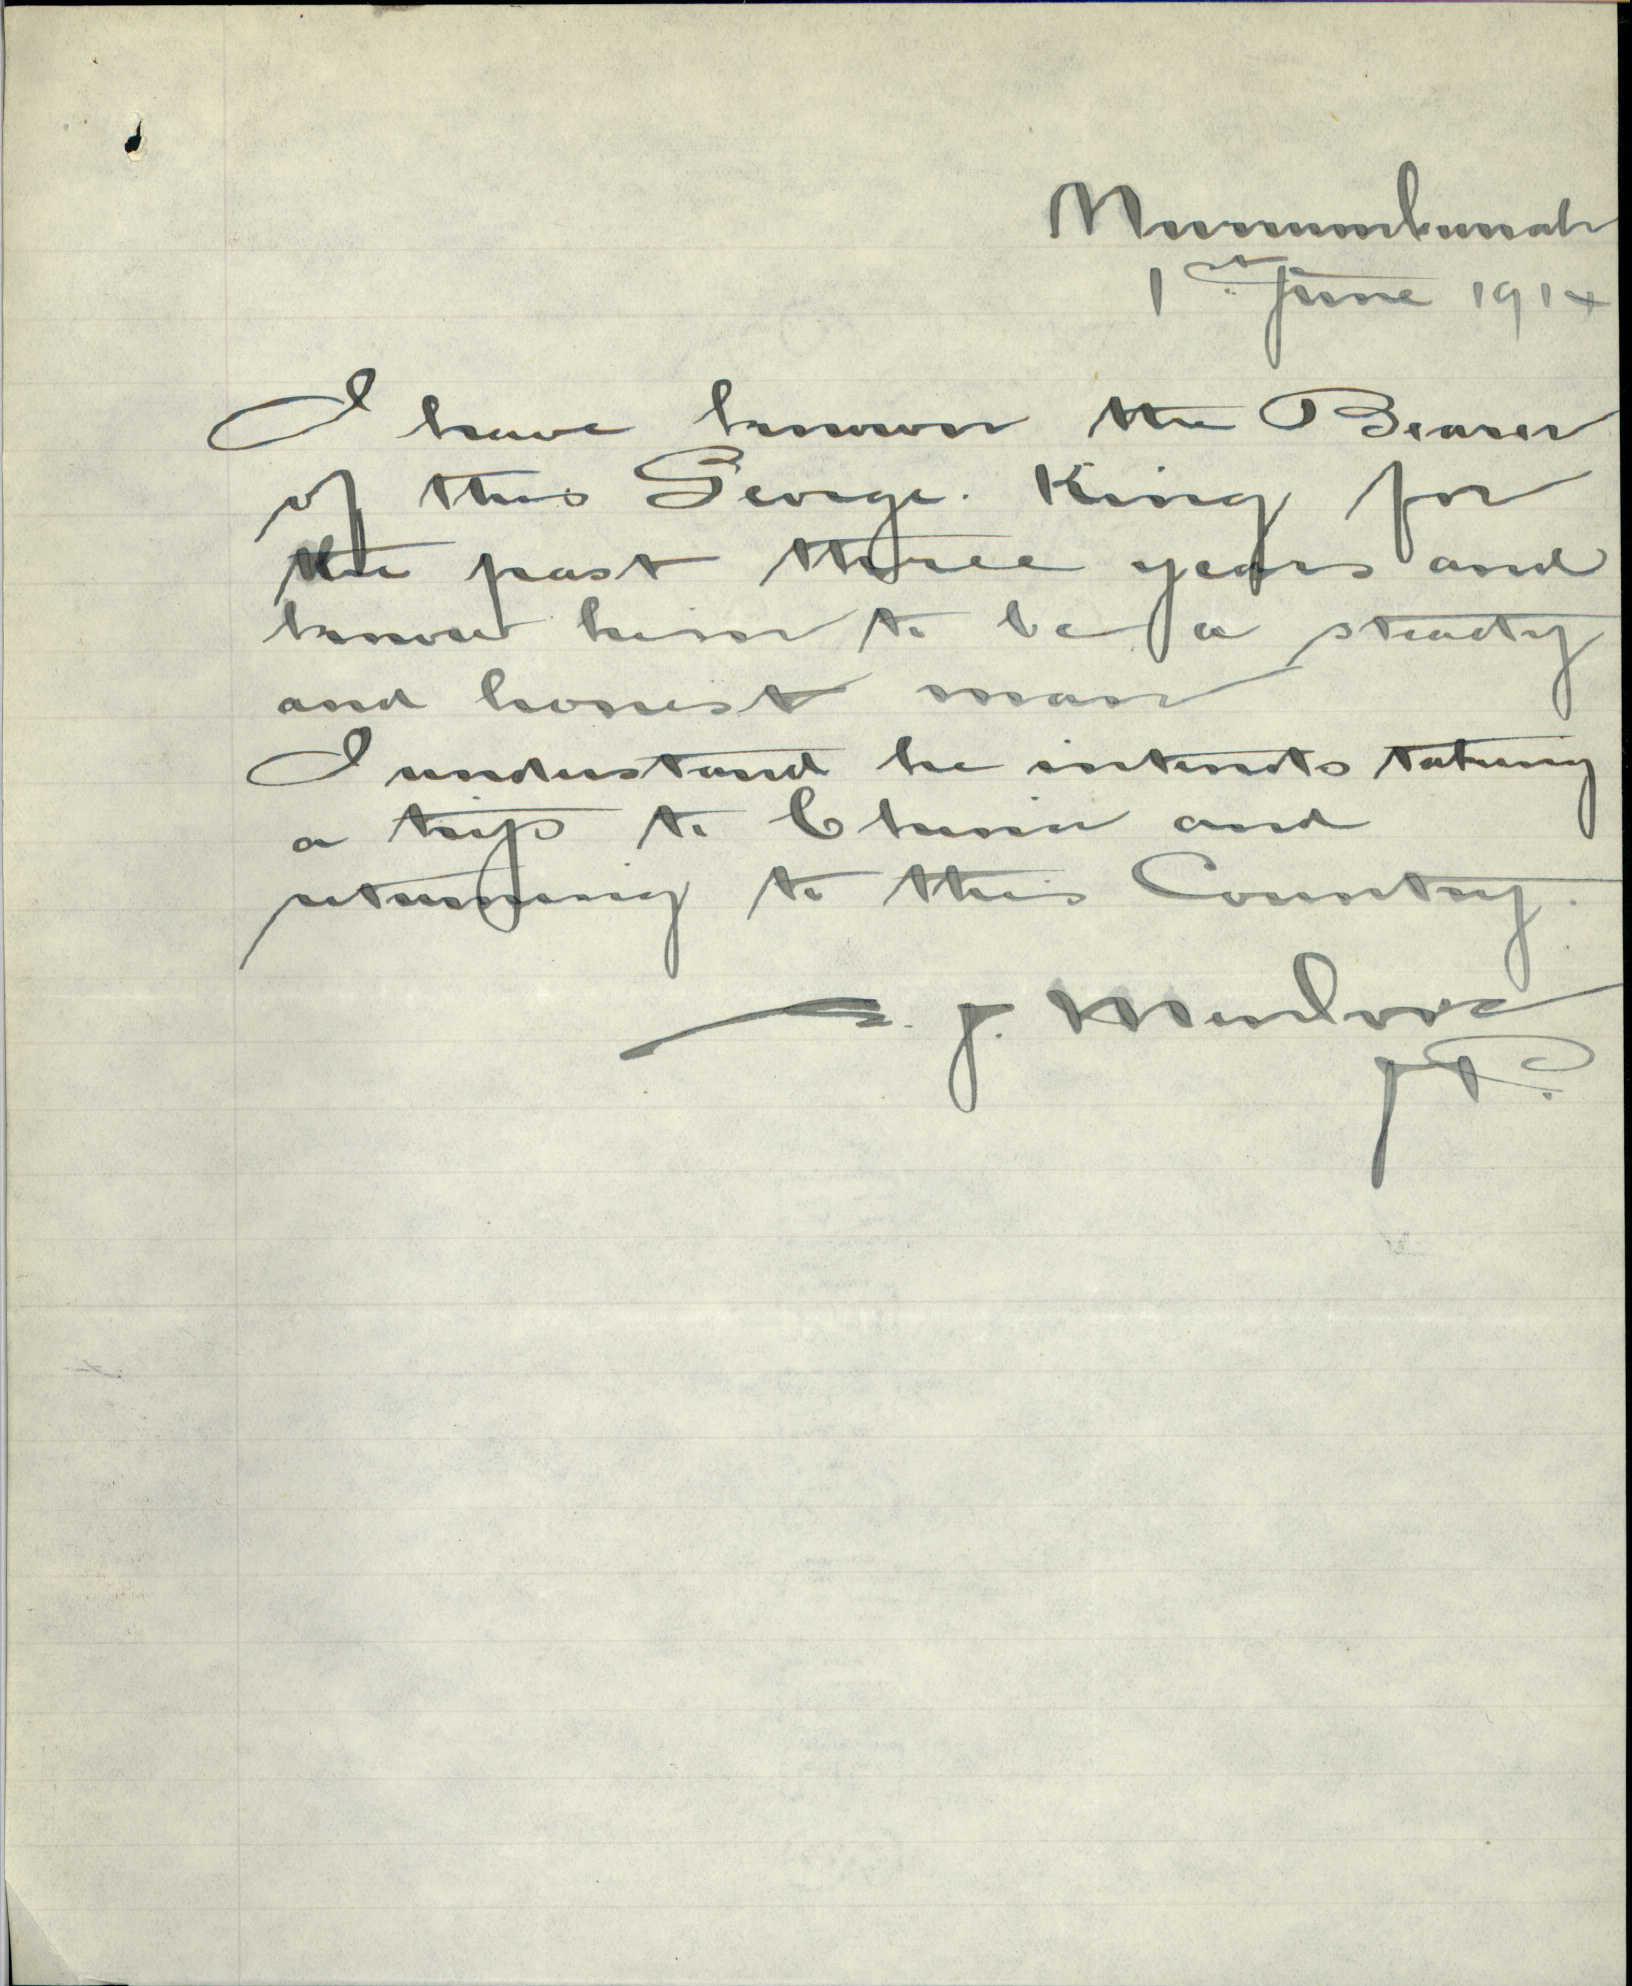 Murrumburrah
1st June 1914
I have known the Bearer
of this George. King for
the past three years and
know him to be a steady
and honest man
I understand he intends taking
a trip to China and
returning to this Country.
J.
J.P.